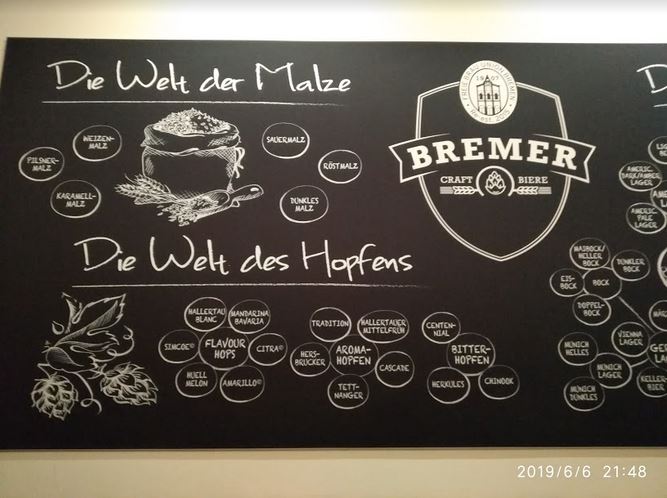 Die Welt der Malze
WEIZEN-
MALZ
PILSNER-
MALZ
KARAMELL-
MALZ
SAUERMALZ
RÖSTMALZ
DUNKLES
MALZ
FREIE BRAU UNION BREMEN
1907
BREMER
CRAFT BIERE
Die Welt des Hopfens
HALLERTAU
BLANC
MANDARINA
BAVARIA
SIMCOE©
FLAVOUR
HOPS
CITRA©
HUELL
MELON
AMARILLO©
TRADITION
HALLERTAUER
MITTELFRÜH
HERS-
BRUCKER
AROMA-
HOPFEN
CASCADE
TETT-
NANGER
CENTEN-
NIAL
BITTER-
HOPFEN
HERKULES
CHINOOK
AMERIC.
DARK/AMBER
LAGER
AMERIC.
PALE
LAGER
MAIBOCK/
HELLER
BOCK
DUNKLER
BOCK
EIS-
BOCK
BOCK
DOPPEL-
BOCK
VIENNA
LAGER
MUNICH
HELLES
MUNICH
LAGER
MUNICH
DUNKLES
KELLER-
2019/6/6 21:48